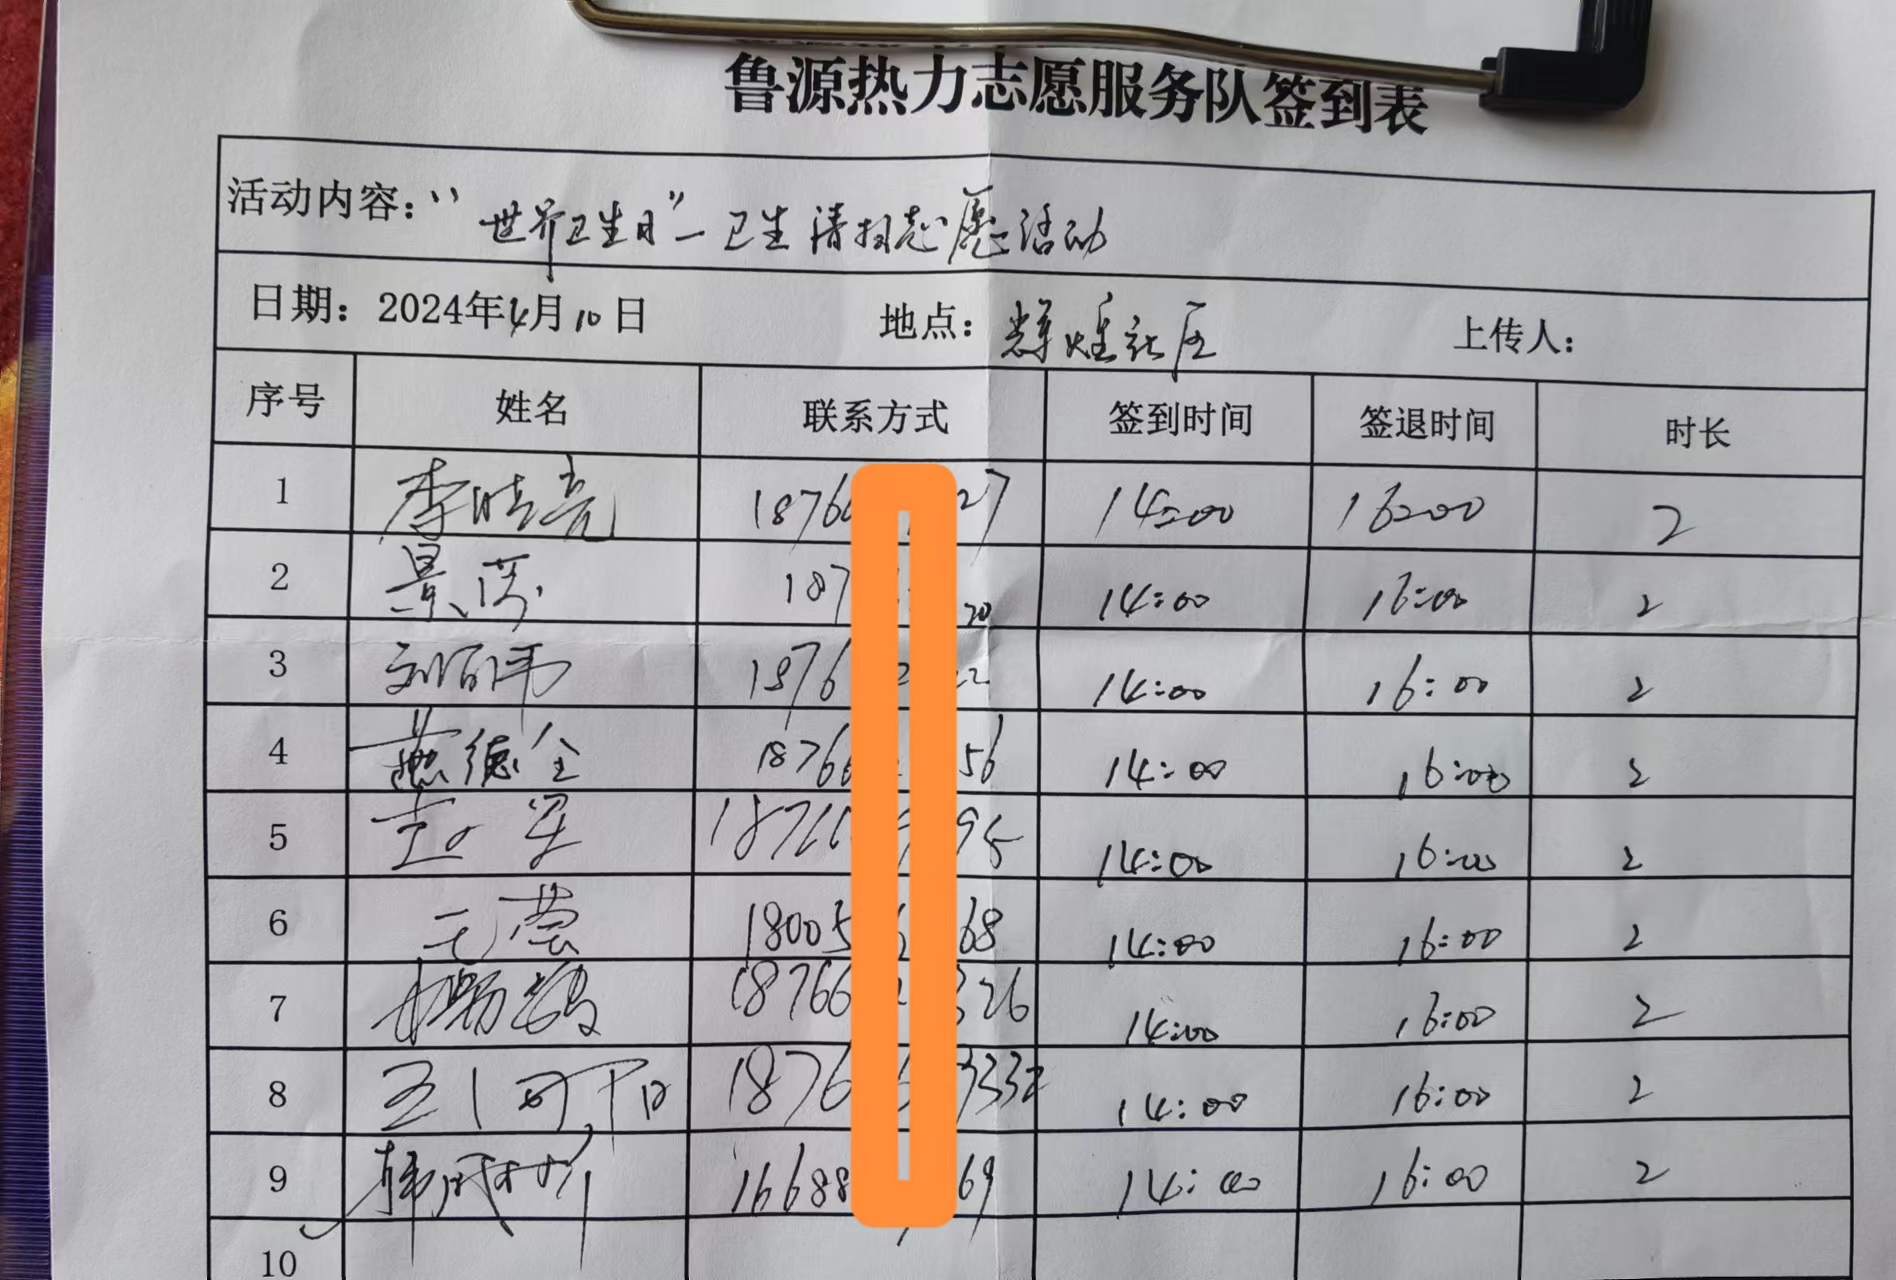 鲁源热力志愿服务队签到表
活动内容：“世界卫生日”—卫生清扫志愿活动
日期：2024年4月10日 地点：辉煌社区 上传人：
序号 姓名 联系方式 签到时间 签退时间 时长
1 李皓亮 1876 27 14:00 16:00 2
2 景 187 20 14:00 16:00 2
3 刘百伟 1876 22 14:00 16:00 2
4 燕德全 18766 56 14:00 16:00 2
5 1876 95 14:00 16:00 2
6 18005 68 14:00 16:00 2
7 18766 326 14:00 16:00 2
8 1876 3332 14:00 16:00 2
9 韩 16688 69 14:00 16:00 2
10